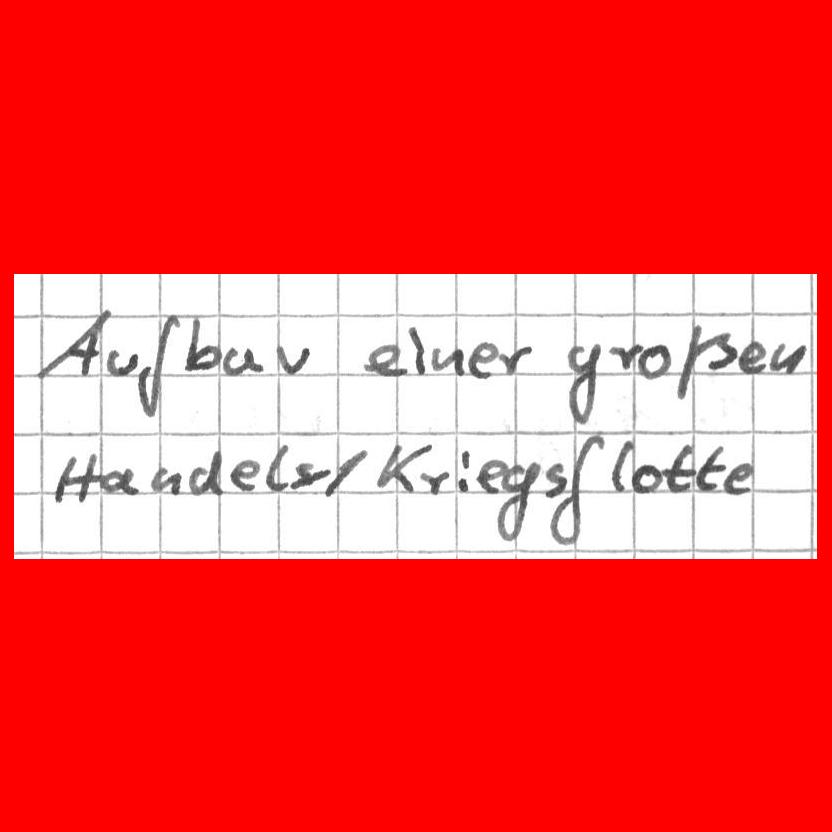 Aufbau einer großen
Handels/Kriegsflotte